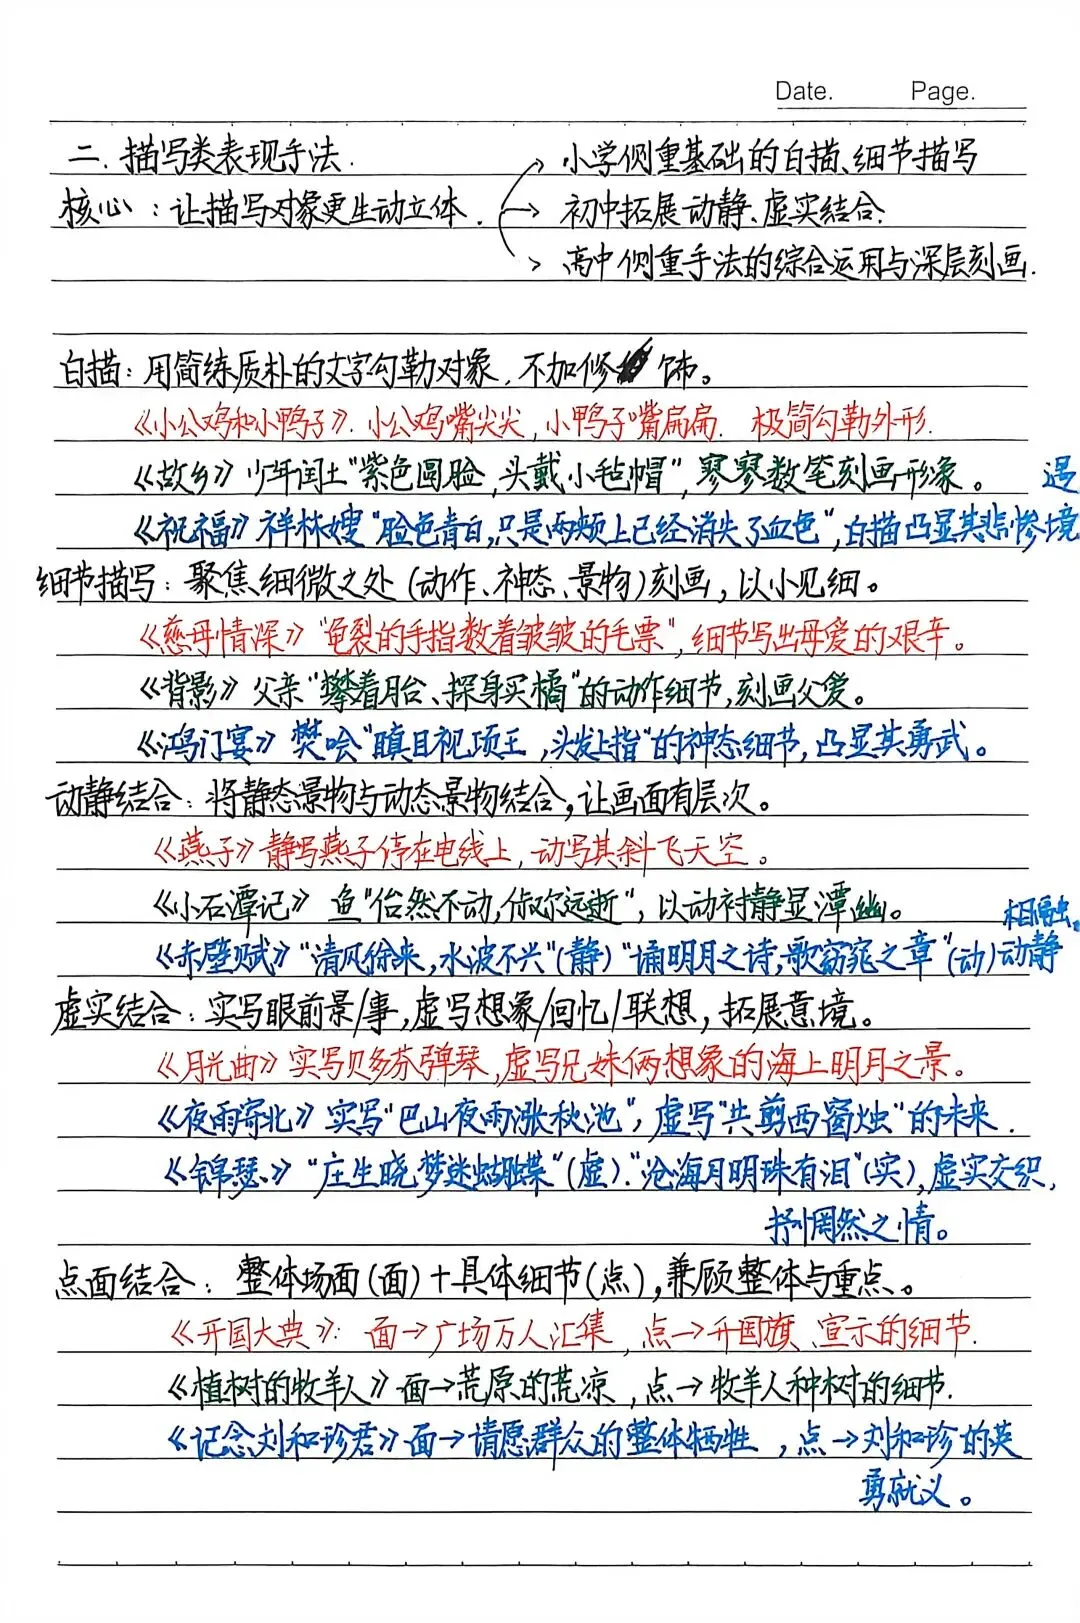 Date. Page.
二.描写类表现手法.
核心：让描写对象更生动立体.
→ 小学侧重基础的白描、细节描写
→ 初中拓展动静、虚实结合.
→ 高中侧重手法的综合运用与深层刻画.
白描：用简练质朴的文字勾勒对象，不加修饰。
《小公鸡和小鸭子》.小公鸡嘴尖尖，小鸭子嘴扁扁. 极简勾勒外形.
《故乡》少年闰土"紫色圆脸，头戴小毡帽"，寥寥数笔刻画形象。
《祝福》祥林嫂"脸色青白，只是两颊上已经消失了血色"，白描凸显其悲惨境遇
细节描写：聚焦细微之处(动作、神态、景物)刻画，以小见细。
《慈母情深》"龟裂的手指数着皱皱的毛票"，细节写出母爱的艰辛。
《背影》父亲"攀着月台、探身买橘"的动作细节，刻画父爱。
《鸿门宴》樊哙"瞋目视项王，头发上指"的神态细节，凸显其勇武。
动静结合：将静态景物与动态景物结合，让画面有层次。
《燕子》静写燕子停在电线上，动写其斜飞天空。
《小石潭记》鱼"佁然不动，俶尔远逝"，以动衬静显潭幽。
《赤壁赋》"清风徐来，水波不兴"(静)"诵明月之诗，歌窈窕之章"(动)动静相融。
虚实结合：实写眼前景/事，虚写想象/回忆/联想，拓展意境。
《月光曲》实写贝多芬弹琴，虚写兄妹俩想象的海上明月之景。
《夜雨寄北》实写"巴山夜雨涨秋池"，虚写"共剪西窗烛"的未来.
《锦瑟》"庄生晓梦迷蝴蝶"(虚)."沧海月明珠有泪"(实)，虚实交织，
抒惘然之情。
点面结合：整体场面(面)+具体细节(点)，兼顾整体与重点。
《开国大典》：面→广场万人汇集，点→升国旗、宣示的细节.
《植树的牧羊人》面→荒原的荒凉，点→牧羊人种树的细节.
《记念刘和珍君》面→请愿群众的整体牺牲，点→刘和珍的英
勇就义。